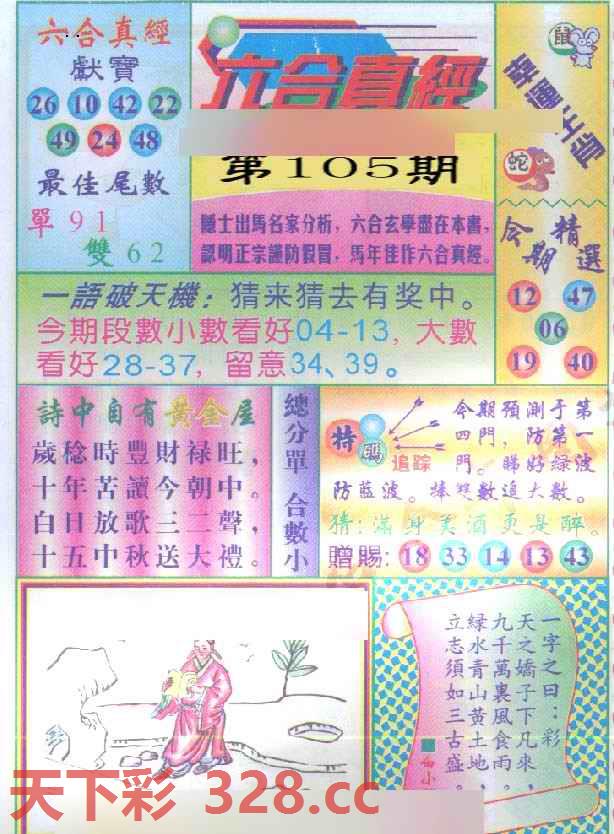 六合真經
獻寶
26 10 42 22
49 24 48
最佳尾數
單91
雙62
六合真經
第105期
隱士出馬名家分析，六合玄學盡在本書，
認明正宗謹防假冒，馬年佳作六合真經。
鼠
幸運生肖
蛇
今期精選
12 47
06
19 40
一語破天機：猜来猜去有奖中。
今期段數小數看好04-13，大數
看好28-37，留意34、39。
詩中自有黄金屋
歲稔時豐財禄旺，
十年苦讀今朝中。
白日放歌三二聲，
十五中秋送大禮。
總分單 合數小
特碼
追踪
今期預測于第
四門，防第一
門。睇好緑波
防藍波。捧雙數追大數。
猜：滿身美酒更是醉。
贈賜：18 33 14 13 43
一字之曰：彩
天之嬌子下凡來，
九千萬裏風食雨。
緑水青山黄土地，
立志須如三古盛。
天下彩 328.cc